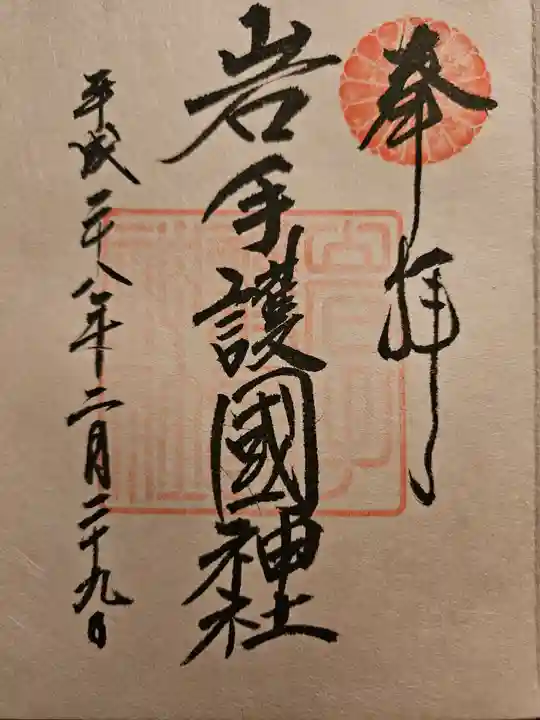 奉拝
岩手護國神社
平成二十八年二月二十九日